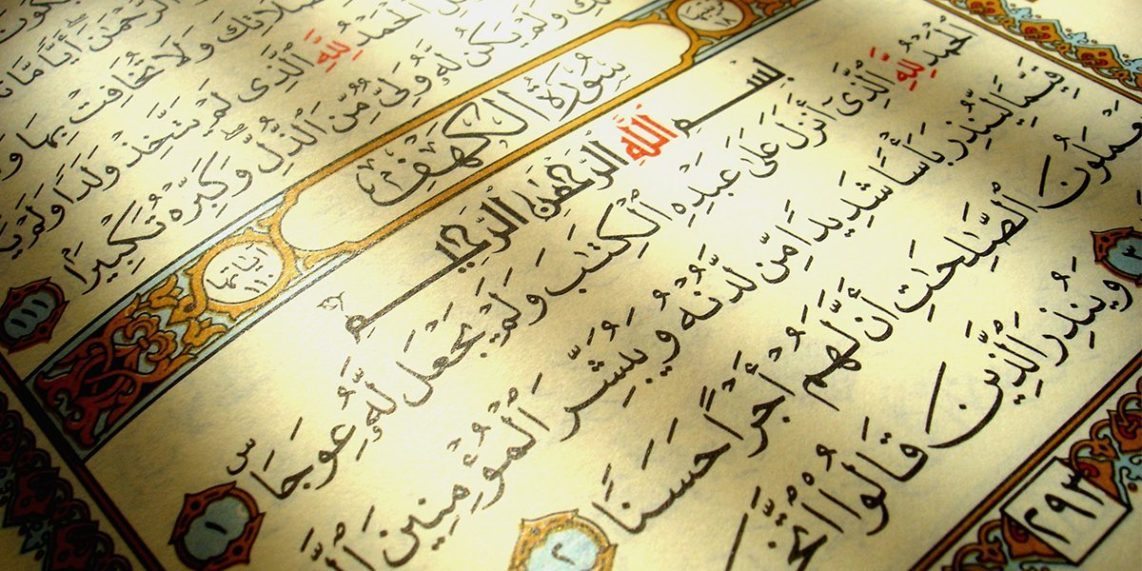 ٱلرَّحْمَٰنَ أَيًّا مَّا
وَلَا تُخَافِتْ بِهَا
ٱلْحَمْدُ لِلَّهِ ٱلَّذِى لَمْ يَتَّخِذْ وَلَدًا وَلَمْ
وَلَمْ يَكُن لَّهُۥ وَلِىٌّ مِّنَ ٱلذُّلِّ وَكَبِّرْهُ تَكْبِيرًا ١١١
سُورَةُ الكَهْفِ
آيَاتُهَا ١١٠
بِسْمِ ٱللَّهِ ٱلرَّحْمَٰنِ ٱلرَّحِيمِ
ٱلْحَمْدُ لِلَّهِ ٱلَّذِىٓ أَنزَلَ عَلَىٰ عَبْدِهِ ٱلْكِتَٰبَ وَلَمْ يَجْعَل لَّهُۥ عِوَجَاۜ ١
قَيِّمًا لِّيُنذِرَ بَأْسًا شَدِيدًا مِّن لَّدُنْهُ وَيُبَشِّرَ ٱلْمُؤْمِنِينَ
يَعْمَلُونَ ٱلصَّٰلِحَٰتِ أَنَّ لَهُمْ أَجْرًا حَسَنًا ٢
٣ وَيُنذِرَ ٱلَّذِينَ قَالُوا۟
٢٩٣